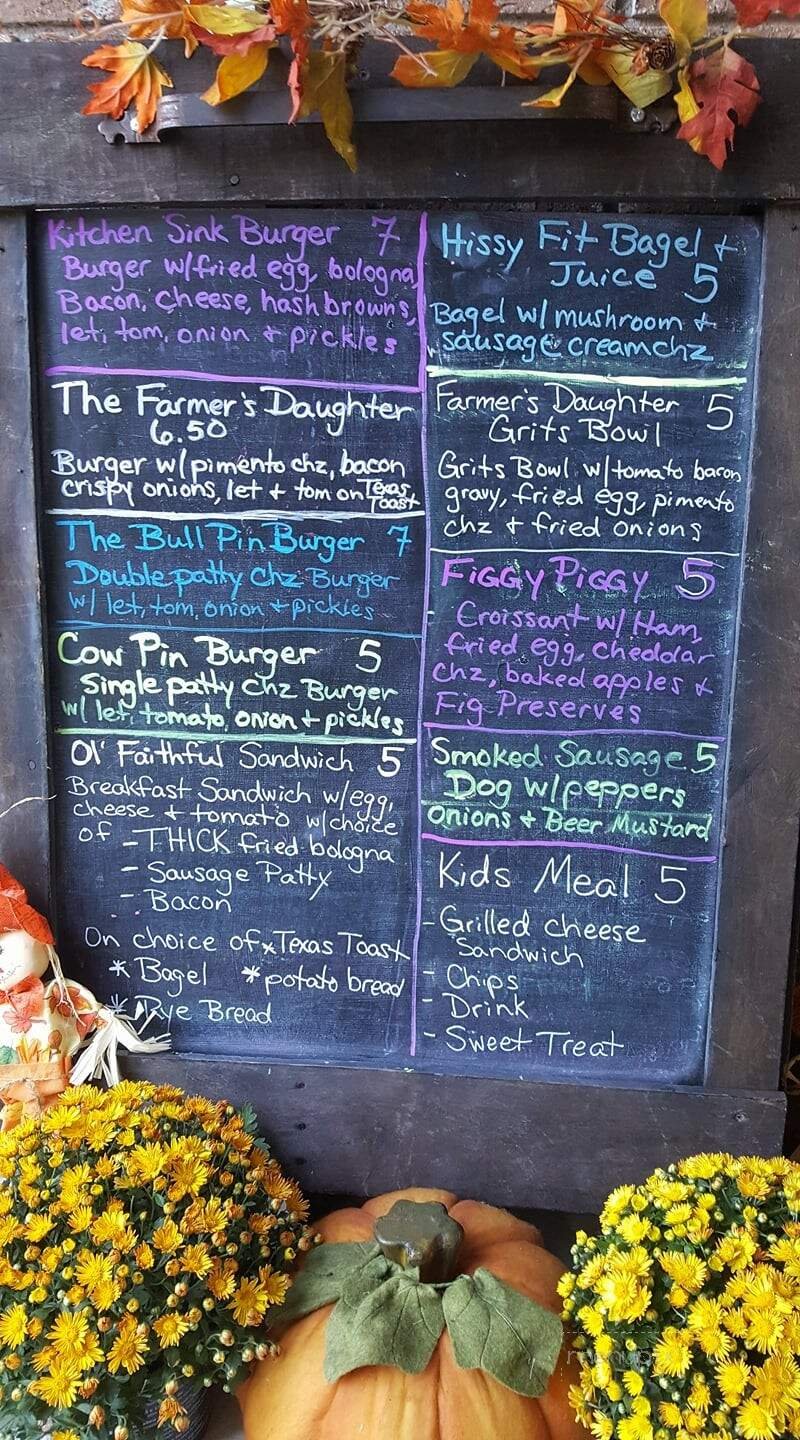 Kitchen Sink Burger 7
Burger w/fried egg, bologna,
Bacon, cheese, hashbrowns,
let, tom, onion + pickles
The Farmer's Daughter
6.50
Burger w/pimento chz, bacon
crispy onions, let + tom on Texas
Toast
The Bull Pin Burger 7
Double patty Chz Burger
w/ let, tom, onion + pickles
Cow Pin Burger 5
Single patty Chz Burger
w/ let, tomato, onion + pickles
Ol' Faithful Sandwich 5
Breakfast Sandwich w/egg,
cheese + tomato w/choice
of -THICK fried bologna
- Sausage Patty
- Bacon
On choice of *Texas Toast
* Bagel *potato bread
* Rye Bread
Hissy Fit Bagel +
Juice 5
Bagel w/ mushroom +
sausage creamchz
Farmer's Daughter 5
Grits Bowl
Grits Bowl w/tomato bacon
gravy, fried egg, pimento
chz + fried onions
FiGGY PiGGY 5
Croissant w/ Ham,
fried egg, cheddar
chz, baked apples +
Fig Preserves
Smoked Sausage 5
Dog w/peppers
Onions + Beer Mustard
Kids Meal 5
- Grilled cheese
Sandwich
- Chips
- Drink
- Sweet Treat